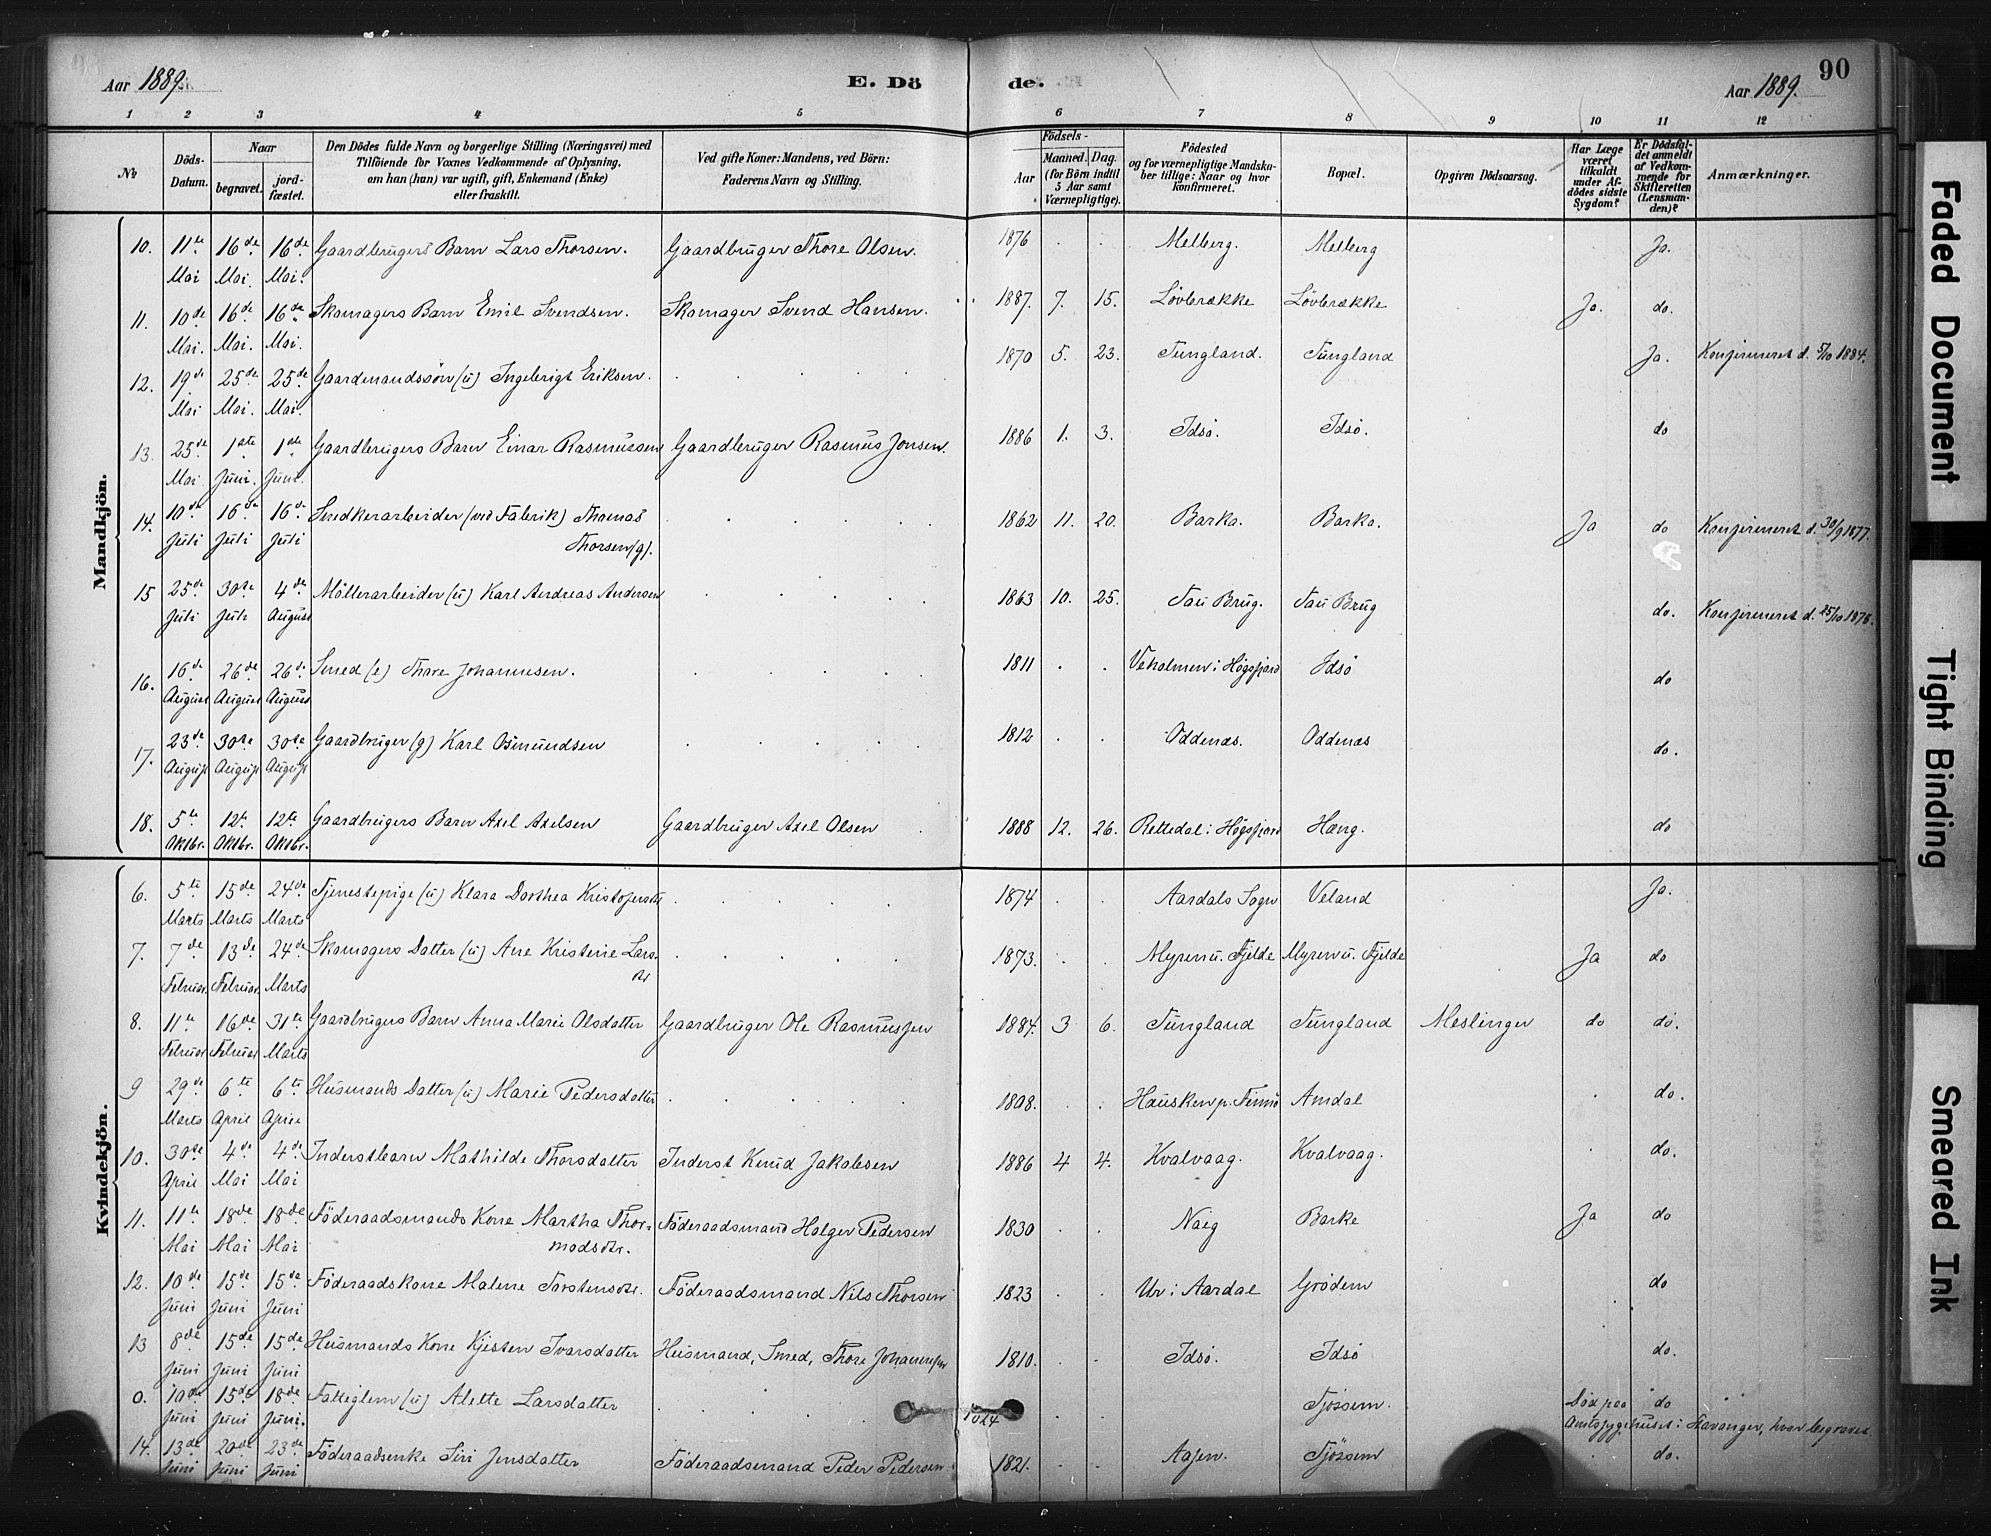 Aar 1889. E. Dö de. Aar 1889. 90
1 2 3 4 5 6 7 8 9 10 11 12
No
Döds-Datum.
Naar begravet. jordfæstet.
Den Dödes fulde Navn og borgerlige Stilling (Næringsvei) med
Tilföiende for Voxnes Vedkommende af Oplysning,
om han (hun) var ugift, gift, Enkemand (Enke)
eller fraskilt.
Ved gifte Koner: Mandens, ved Börn:
Faderens Navn og Stilling.
Födsels-
Aar
Maaned. Dag.
(for Börn indtil
5 Aar samt
Værnepligtige).
Födested
og for værnepligtige Mandska-
ber tillige: Naar og hvor
konfirmeret.
Bopæl.
Opgiven Dödsaarsag.
Har Læge
været
tilkaldt
under Af-
dödes sidste
Sygdom?
Er Dödsfal-
det anmeldt
af Vedkom-
mende for
Skifteretten
(Lensman-
den)?
Anmærkninger.
Mandkjön.
10. 11te Mai 16de Mai. 16de Mai. Gaardbrugers Barn Lars Thorsen. Gaardbruger Thore Olsen. 1876 . . Melberg. Melberg Ja.
11. 10de Mai. 16de Mai. 16de Mai. Skomagers Barn Emil Svendsen. Skomager Svend Hansen. 1887. 7. 15. Løvbrække Løvbrække Ja. do.
12. 19de Mai 25de Mai. 25de Mai. Gaardmandssøn (u) Ingebrigt Eriksen. 1870 5. 23. Tungland. Tungland Ja. Konfirmeret d. 5/10 1884.
13. 25de Mai 1ste Juni. 1ste Juni. Gaardbrugers Barn Einar Rasmussen Gaardbruger Rasmus Jonsen. 1886 1. 3. Idsø. Idsø. do
14. 10de Juli 16de Juli 16de Juli Snedkerarbeider (ved Fabrik) Thomas
Thorsen (g). 1862 11. 20. Barka. Barka. Ja do Konfirmeret d. 30/9 1877.
15 25de Juli 30te Juli 4de August Møllerarbeider (u) Karl Andreas Andersen 1863 10. 25. Tau Brug. Tau Brug do. Konfirmeret d. 25/10 1878.
16. 16de August 26de August 26de August Smed (e) Thore Johannesen. 1811 . . Veholmen i Høgsfjord Idsø do
17. 23de August 30te August 30te August Gaardbruger (g) Karl Osmundsen 1812 . . Oddenæs. Oddenæs do.
18. 5te Oktbr. 12te Oktbr. 12te Oktbr. Gaardbrugers Barn Axel Axelsen Gaardbruger Axel Olsen 1888 12. 26. Rettedal i Høgsfjord Hæng. do
Kvindekjön.
6. 5te Marts 15de Marts 24de Marts Tjenestepige (u) Klara Dorthea Kristofersdtr 1874 . . Aardals Sogn Veland Ja.
7. 7de Februar. 13de Februar. 24de Marts Skomagers Datter (u) Ane Kristine Lars-
dtr 1873. . . Myren u. Fjelde Myren u. Fjelde Ja do
8. 11te Februar. 16de Februar 31te Marts Gaardbrugers Barn Anna Marie Olsdatter Gaardbruger Ole Rasmussen 1884. 3 6. Tungland Tungland Meslinger do do.
9 29de Marts 6te April 6te April Husmands Datter (u) Marie Pedersdatter 1808. . . Hausken p. Finnø Amdal do.
10. 30te April 4de Mai 4de Mai Inderstbarn Mathilde Thorsdatter Inderst Knud Jakobsen 1886 4 4. Kvalvaag. Kvalvaag. do.
11. 11te Mai 18de Mai 18de Mai Føderaadsmands Kone Martha Thor-
modsdtr. Føderaadsmand Holger Pedersen 1830 . . Naeg Barke Ja do
12. 10de Juni 15de Juni 15de Juni Føderaadskone Malene Torstensdtr. Føderaadsmand Nils Thorsen 1823 . . Ur i Aardal Grødem do
13 8de Juni 15de Juni 15de Juni Husmands Kone Kjersten Ivarsdatter Husmand, Smed, Thore Johannesen 1810. . . Idsø. Idsø do.
0. 10de Juni 15de Juni 18de Juni. Fattiglem (u) Alette Larsdatter 1824 . . Tjøssem. Død paa do
Amtssygehuset i Stavanger, hvor begravet
14. 13de Juni 20de Juni 23de Juni Føderaadsenke Siri Jensdatter Føderaadsmand Peder Pedersen 1821. . . Aasen. Tjøssem do.
Faded Document
Tight Binding
Smeared Ink